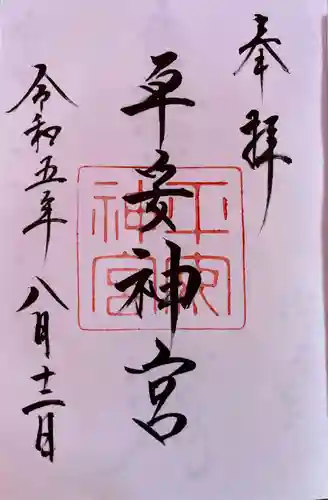 奉拝
平安神宮
平安神宮
令和五年八月十二日